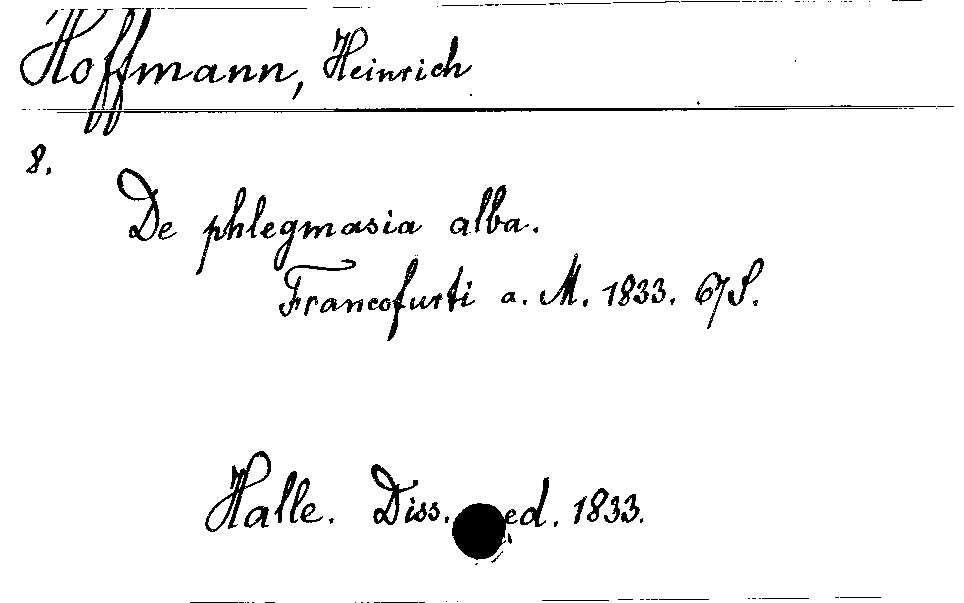 Hoffmann, Heinrich
8.
De phlegmasia alba.
Francofurti a. M. 1833. 67 S.
Halle. Diss. ed. 1833.